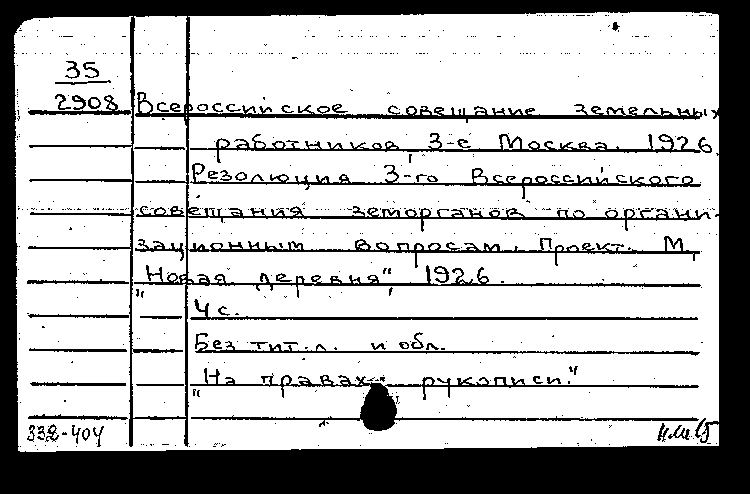 35
2908 Всероссийское совещание земельных
работников, 3-е Москва. 1926.
Резолюция 3-го Всероссийского
совещания земорганов по органи-
зационным вопросам. Проект. М.,
"Новая деревня", 1926.
4 с.
Без тит. л. и обл.
"На правах рукописи."
332-404